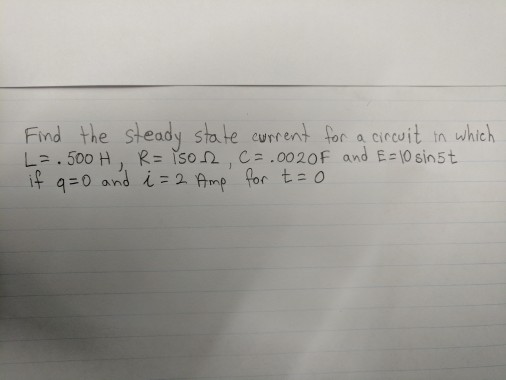 Find the steady state current for a circuit in which
L = .500 H, R = 150 Ω, C = .0020F and E = 10 sin5t
if q=0 and i = 2 Amp for t = 0